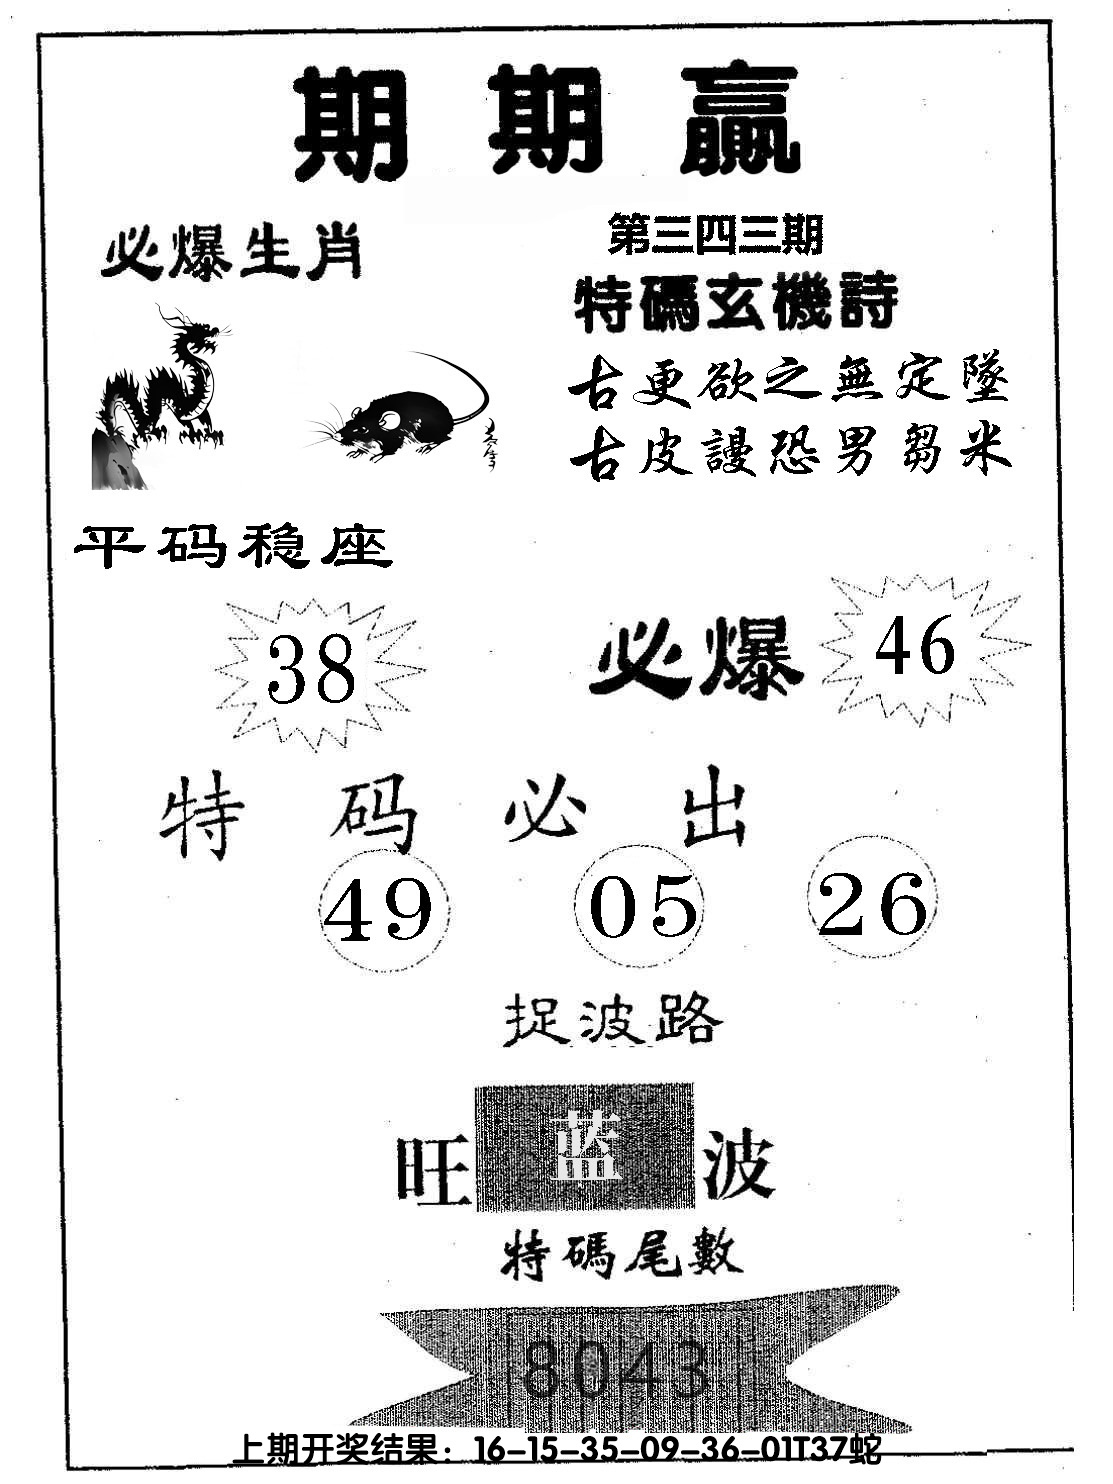 期期贏
必爆生肖
第三四三期
特碼玄機詩
古更欲之無定墜
古皮謾恐男芻米
平码稳座
38
必爆
46
特码必出
49 05 26
捉波路
旺蓝波
特碼尾數
8043
上期开奖结果：16-15-35-09-36-01T37蛇